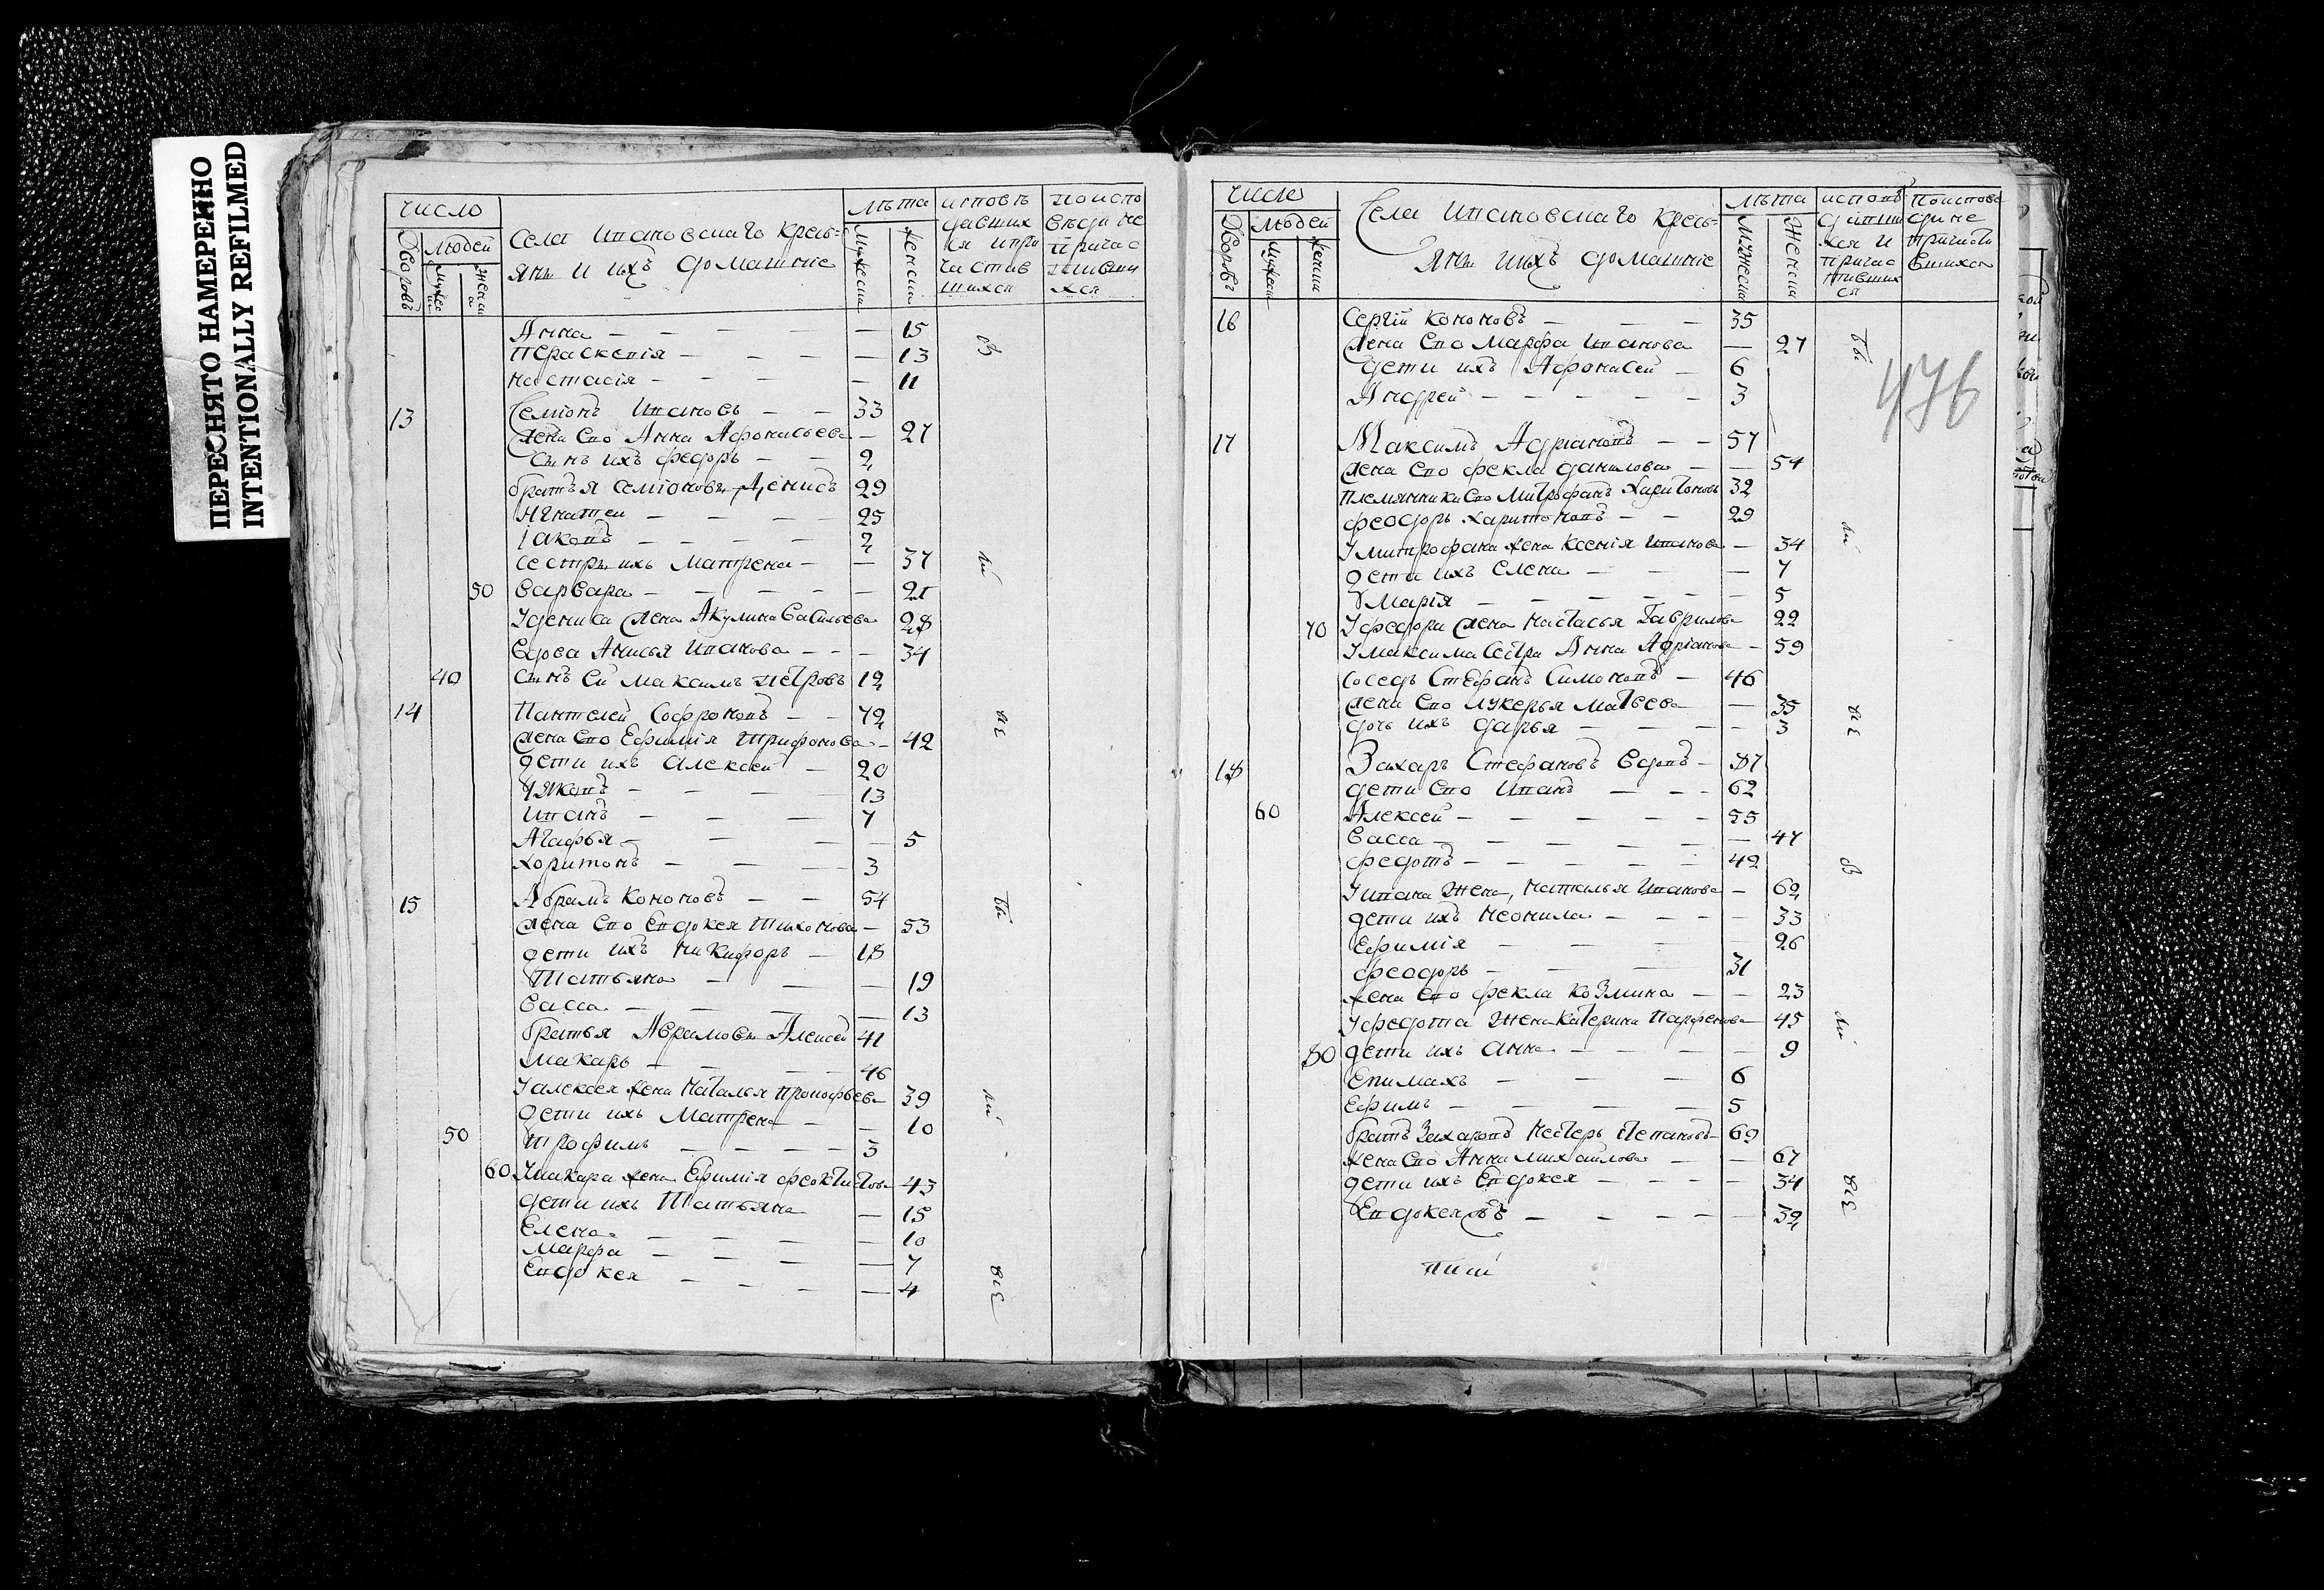 ПЕРЕСНЯТО НАМЕРЕННО
INTENTIONALLY REFILMED
число
Дворовъ
людей
мужеска
женска
Села Ивановскаго кресь=
яне и ихъ домашніе
лѣта
мужеска
женска
исповѣ
давших
ся и при
частив
шихся
по испо
вѣди не
причас
тивши
хся
Анна — — — — 15
Пераскевія — — — — 13
Настасія — — — — 11
13 Семіонъ Ивановъ — — 33
жена ево Анна Афонасьева — 27
сынъ ихъ Федоръ — — 2
братья Семіоновы Денисъ 29
Игнатеи — — — 25
Іаковъ — — — — 2
сестры ихъ Матрена — — 37
50 Варвара — — — — — 21
У Дениса жена Акулина Васильева 28
Вдова Анисья Иванова — — — 34
40 сынъ еи Максимъ Петровъ 12
14 Пантелей Софроновъ — — 72
жена ево Ефимія Трифонова — 42
дети ихъ Алексеи — 20
Яковъ — — — — 13
Иванъ — — — 7
Агафья — — — — 5
Харитонъ — — — 3
15 Абрамъ Кононовъ — — 54
жена ево Евдокея Тихонова — 53
дети ихъ Никифоръ — 18
Татьяна — — — 19
Васса — — — — 13
братья Аврамовы Алексеи 41
Макаръ — — — 46
У Алексея жена Наталья Прокофьева 39
дети ихъ Матрена — — 10
50 Трофимъ — — — — 3
60 У Макара жена Ефимія Феоктистова 43
дети ихъ Татьяна — 15
Елена — — — — 10
Марфа — — — — 7
Евдокея — — — — 4
бы
ли
всѣ
бы
ли
всѣ
число
Дворовъ
людей
мужеска
женска
Села Ивановскаго кресь=
яне и ихъ домашніе
лѣта
мужеска
женска
исповѣ
давши
хся и
причас
тивших
ся
по исповѣ
ди не
причасти
вшихся
476
16 Сергій Кононовъ — — — 35
жена ево Марфа Иванова — 27
дети ихъ Афонасеи — 6
Андреи — — — — — 3
17 Максимъ Адріановъ — — 57
жена ево Фекла Данилова — — 54
племянники ево Митрофанъ Харитоновъ 32
Феодоръ Харитоновъ — — 29
У Митрофана жена Ксенія Иванова — 34
дети ихъ Елена — — — 7
Марія — — — — — — 5
70 У Федора жена Настасья Гаврилова 22
У Максима сестра Анна Адріанова — 59
соседъ Стефанъ Симоновъ — 46
жена ево Лукерья Матвеева — 35
дочь ихъ Дарья — — — — 3
18 Захаръ Стефановъ вдовъ — 87
дети ево Иванъ — — — 62
60 Алексеи — — — — — 55
Васса — — — — — — 47
Федотъ — — — — — 42
У Ивана жена, Наталья Иванова — 62
дети ихъ Неонила — — — — 33
Ефимія — — — — 26
Феодоръ — — — 31
жена ево Фекла Козмина — — 23
У Федота жена Катерина Парфенова — 45
80 дети ихъ Анна — — — — 9
Епимахъ — — — 6
Ефимъ — — — — 5
братъ Захаровъ Нестеръ Степановъ — 69
жена ево Анна Михайлова — — 67
дети ихъ Евдокея — — — — 34
Евдокея — — — — 32
бы
ли
всѣ
бы
ли
всѣ